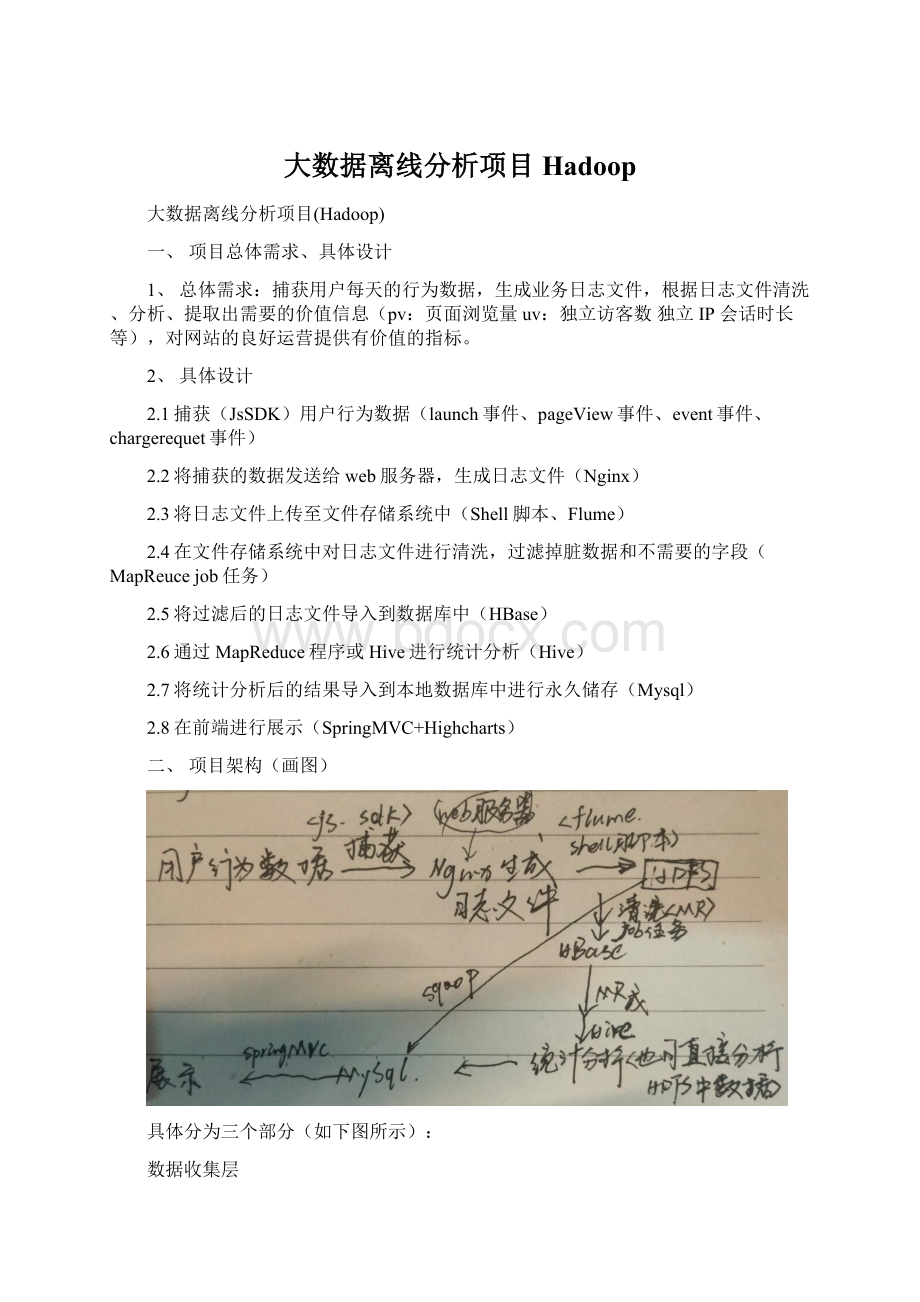 大数据离线分析项目Hadoop
大数据离线分析项目(Hadoop)
一、 项目总体需求、具体设计
1、 总体需求：捕获用户每天的行为数据，生成业务日志文件，根据日志文件清洗
、分析、提取出需要的价值信息（pv：页面浏览量 uv：独立访客数 独立 IP 会话时长
等），对网站的良好运营提供有价值的指标。
2、 具体设计
2.1捕获（JsSDK）用户行为数据（launch事件、pageView事件、event事件、
chargerequet事件）
2.2将捕获的数据发送给web服务器，生成日志文件（Nginx）
2.3将日志文件上传至文件存储系统中（Shell脚本、Flume）
2.4在文件存储系统中对日志文件进行清洗，过滤掉脏数据和不需要的字段（
MapReuce job任务）
2.5将过滤后的日志文件导入到数据库中（HBase）
www.bdocx.com
2.6通过 MapReduce程序或Hive进行统计分析（Hive）
2.7将统计分析后的结果导入到本地数据库中进行永久储存（Mysql）
2.8在前端进行展示（SpringMVC+Highcharts）
二、 项目架构（画图）
<js-sdk> (web服务器 <flume.
shell脚本)
用户行为数据 捕获 Nginx生成 HDFS
日志文件 清洗<MR>
job任务
HBase
sqoop MR或
Hive
springMVC 统计分析<也可直接分析
展示 MySql. HDFS中数据)
具体分为三个部分（如下图所示）：
数据收集层